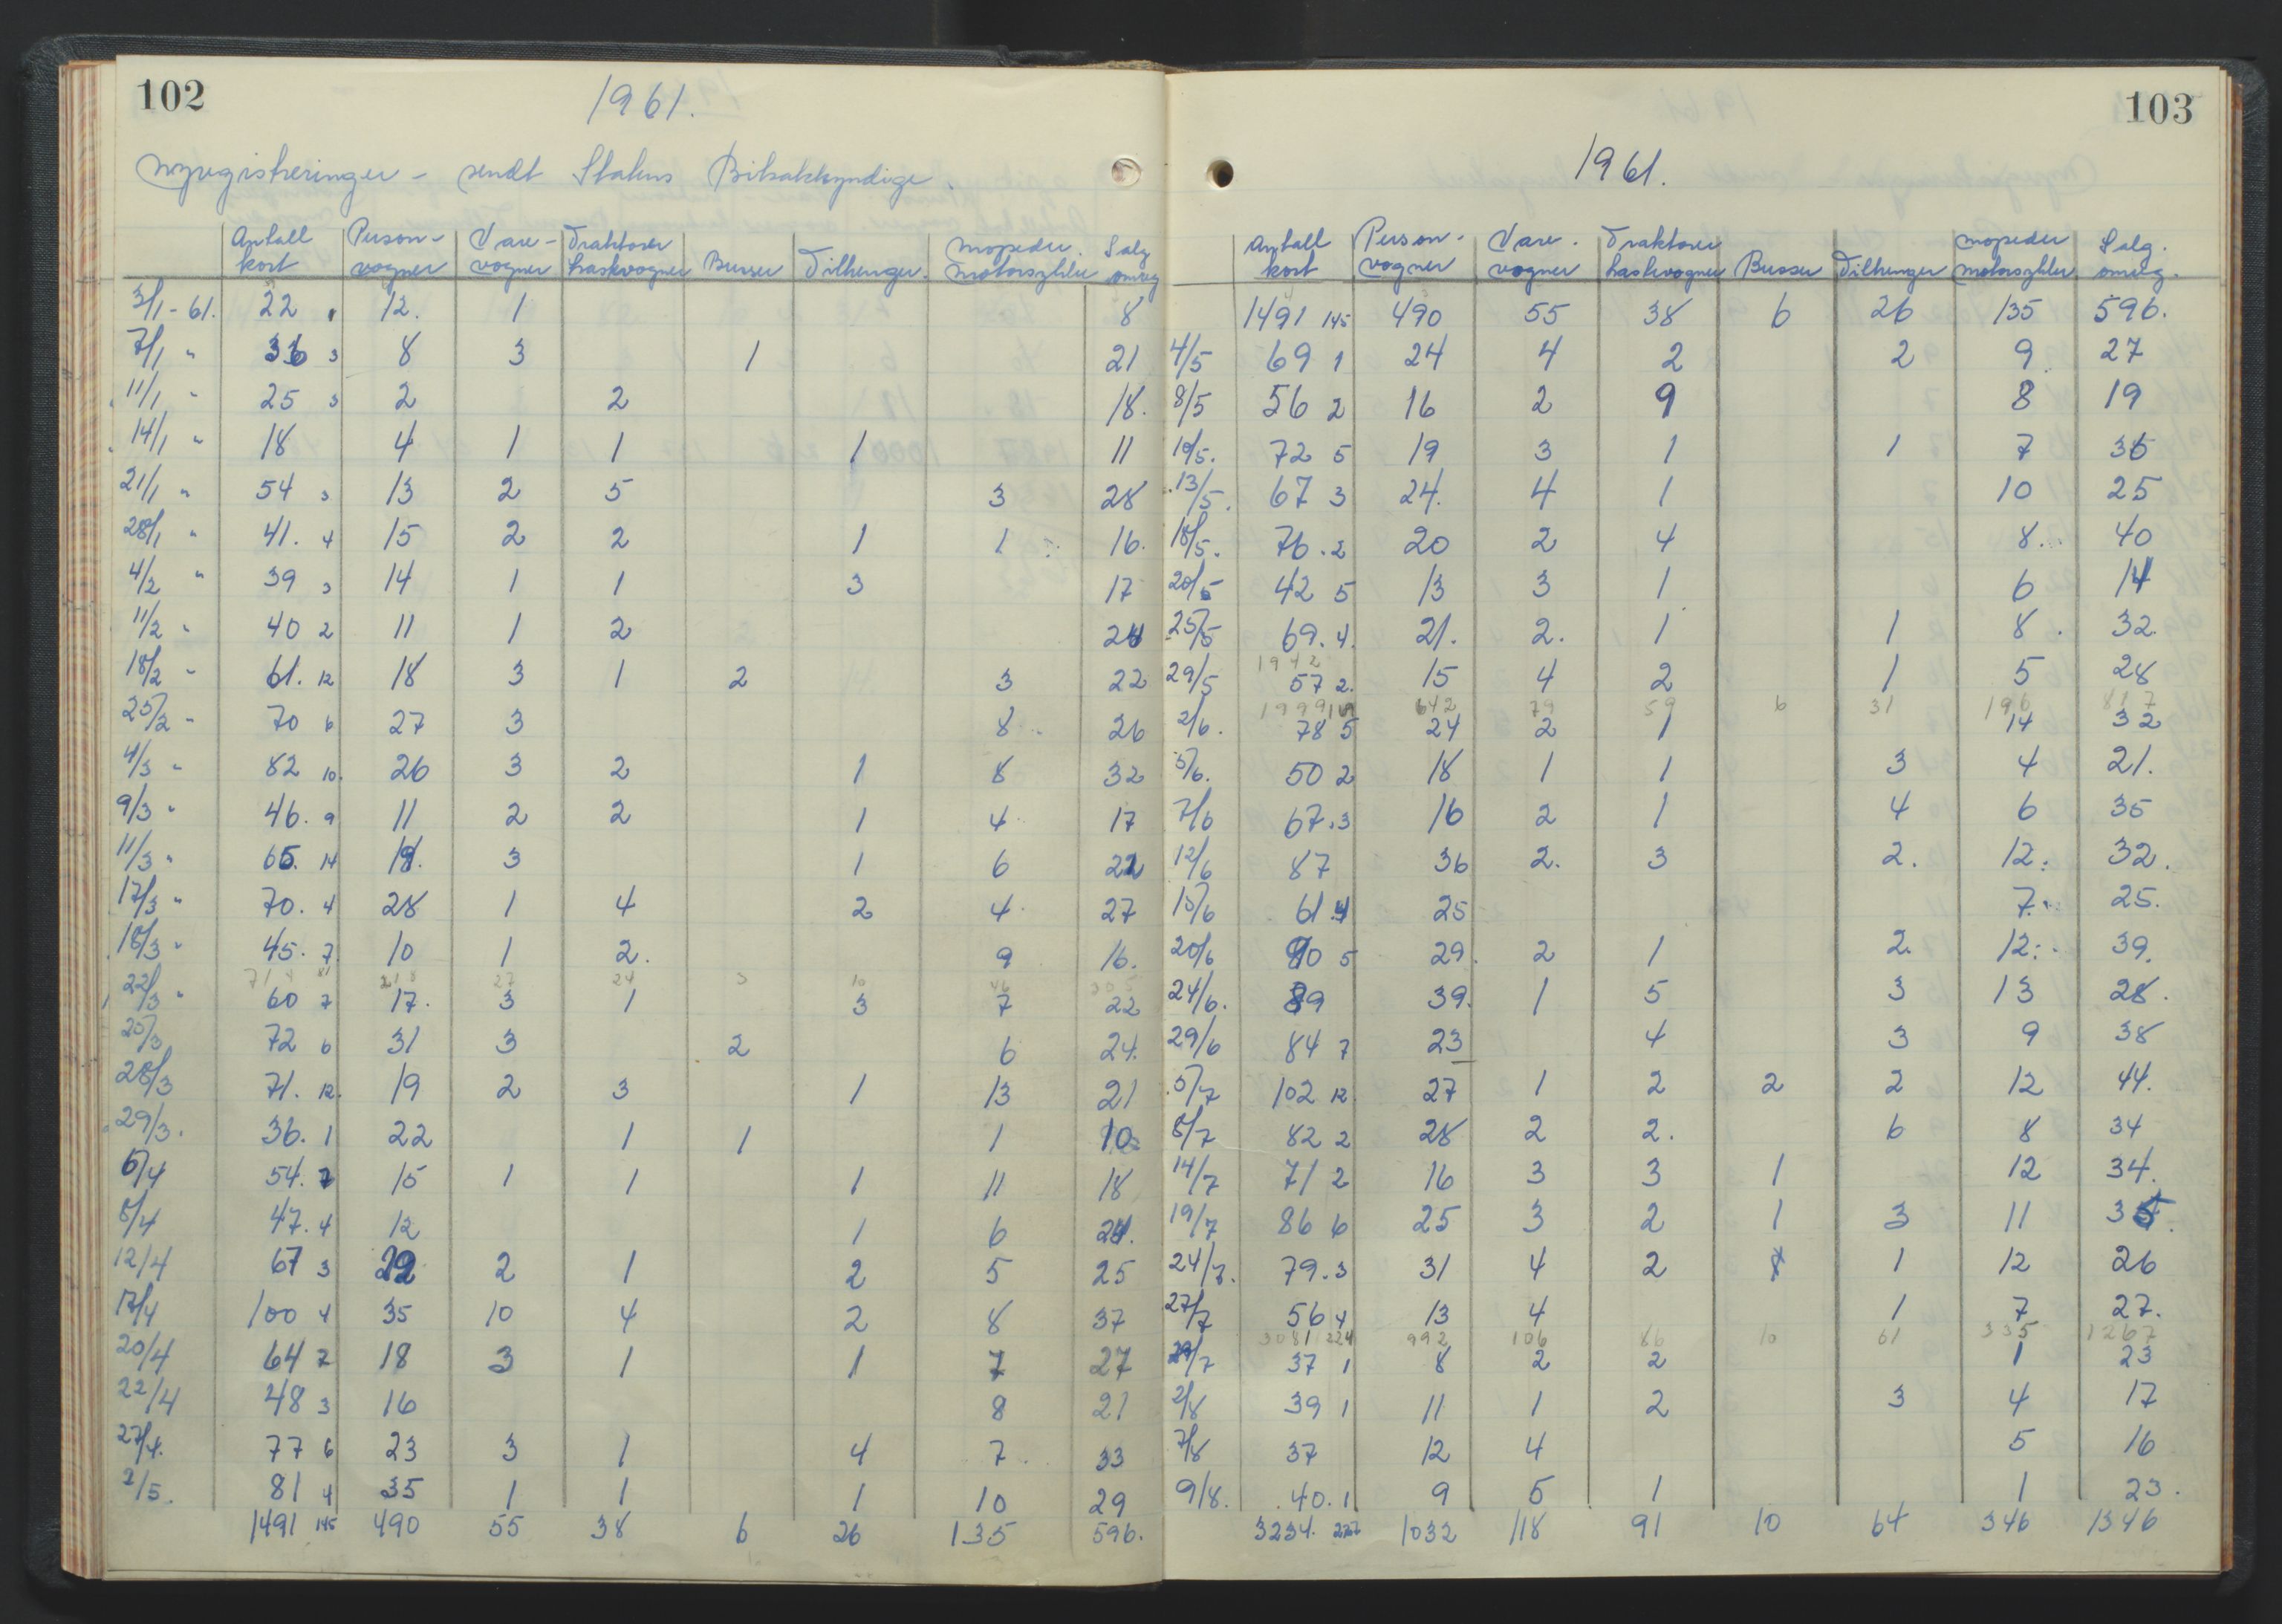 102
1961.
Nyregistreringer - sendt Statens Bilsakkyndige.
Antall kort Person-vogner Vare-vogner Traktorer Lastevogner Busser Tilhenger. Mopeder. Motorsykler Salg omreg
3/1-61. 22 12. 1 8
7/1 " 36 3 8 3 1 21
11/1 " 25 3 2 2 18.
14/1 " 18 4 1 1 1 11
21/1 " 54 3 13 2 5 3 28
28/1 " 41. 4 15 2 2 1 1 16.
4/2 " 39 3 14 1 1 3 17
11/2 " 40 2 11 1 2 24
18/2 " 61. 12 18 3 1 2 3 22
25/2 " 70 6 27 3 8 26
4/3 " 82 10. 26 3 2 1 8 32
9/3 " 46. 9 11 2 2 1 4 17
11/3 " 65. 14 19. 3 1 6 22
17/3 " 70. 4 28 1 4 2 4 27
18/3 " 45. 7. 10 1 2. 9 16.
81 218 27 24 3 10 46 305
22/3 " 60 7 17. 3 1 3 7 22
25/3 72 6 31 3 2 6 24.
28/3 71. 12. 19 2 3 1 13 21
29/3. 36. 1 22 1 1 1 10
6/4 54. 7 15 1 1 1 11 18
8/4 47. 4 12 1 6 24.
12/4 67 3 29 2 1 2 5 25
17/4 100 4 35 10 4 2 8 37
20/4 64 7 18 3 1 1 7 27
22/4 48 3 16 8 21
27/4. 77 6 23 3 1 4 7 33
2/5. 81 4 35 1 1 1 10 29
1491 145 490 55 38 6 26 135 596.
103
1961.
Antall kort Person-vogner Vare-vogner Traktorer Lastevogner Busser Tilhenger Mopeder Motorsykler Salg. omreg.
1491 145 490 55 38 6 26 135 596.
4/5 69 1 24 4 2 2 9 27
8/5 56 2 16 2 9 8 19
10/5. 72 5 19 3 1 1 7 36
13/5. 67 3 24. 4 1 10 25
18/5. 76. 2 20 2 4 8. 40
20/5 42 5 13 3 1 6 14
25/5 69. 4. 21. 2. 1 1 8 32.
1942
29/5 57 2. 15 4 2 1 5 28
1999 642 79 59 6 31 196 817
2/6. 78 5 24 2 1 14 32
5/6. 50 2 18 1 1 3 4 21.
7/6 67. 3 16 2 1 4 6 35
12/6 87 36 2. 3 2. 12. 32.
15/6 61. 4 25 7. 25.
20/6 90 5 29. 2 1 2. 12. 39.
24/6. 89 39. 1 5 3 13 28.
29/6 84 7 23 4 3 9 38
5/7 102 12. 27 1 2 2 2 12 44.
8/7 82 2 28 2 2. 6 8 34
14/7 71 2 16 3 3 1 12 34.
19/7 86 6 25 3 2 1 3 11 35.
24/7. 79. 3 31 4 2 1 12 26
27/7 56 4 13 4 1 7 27.
3081 224 992 106 86 10 61 335 1267
29/7 37 1 8 2 2 1 23
2/8 39 1 11 1 2 3 4 17
7/8 37 12 4 5 16
9/8. 40. 1 9 5 1 1 23.
3234. 227 1032 118 91 10 64 346 1346